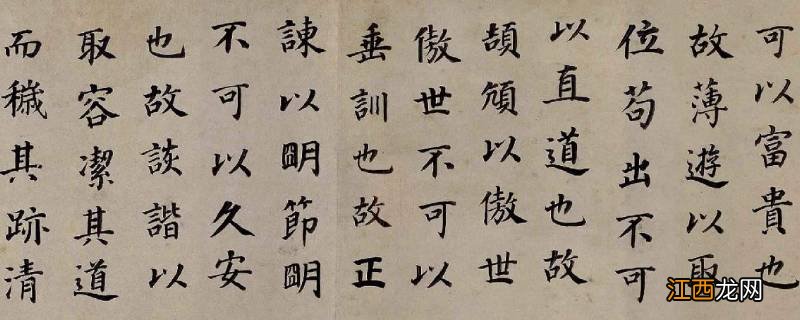 可以富貴也
故薄遊以取
位苟出不可
以直道也故
頡頏以傲世
傲世不可以
垂訓也故正
諫以明節明
不可以久安
也故詼諧以
取容潔其道
而穢其跡清
江西龙网